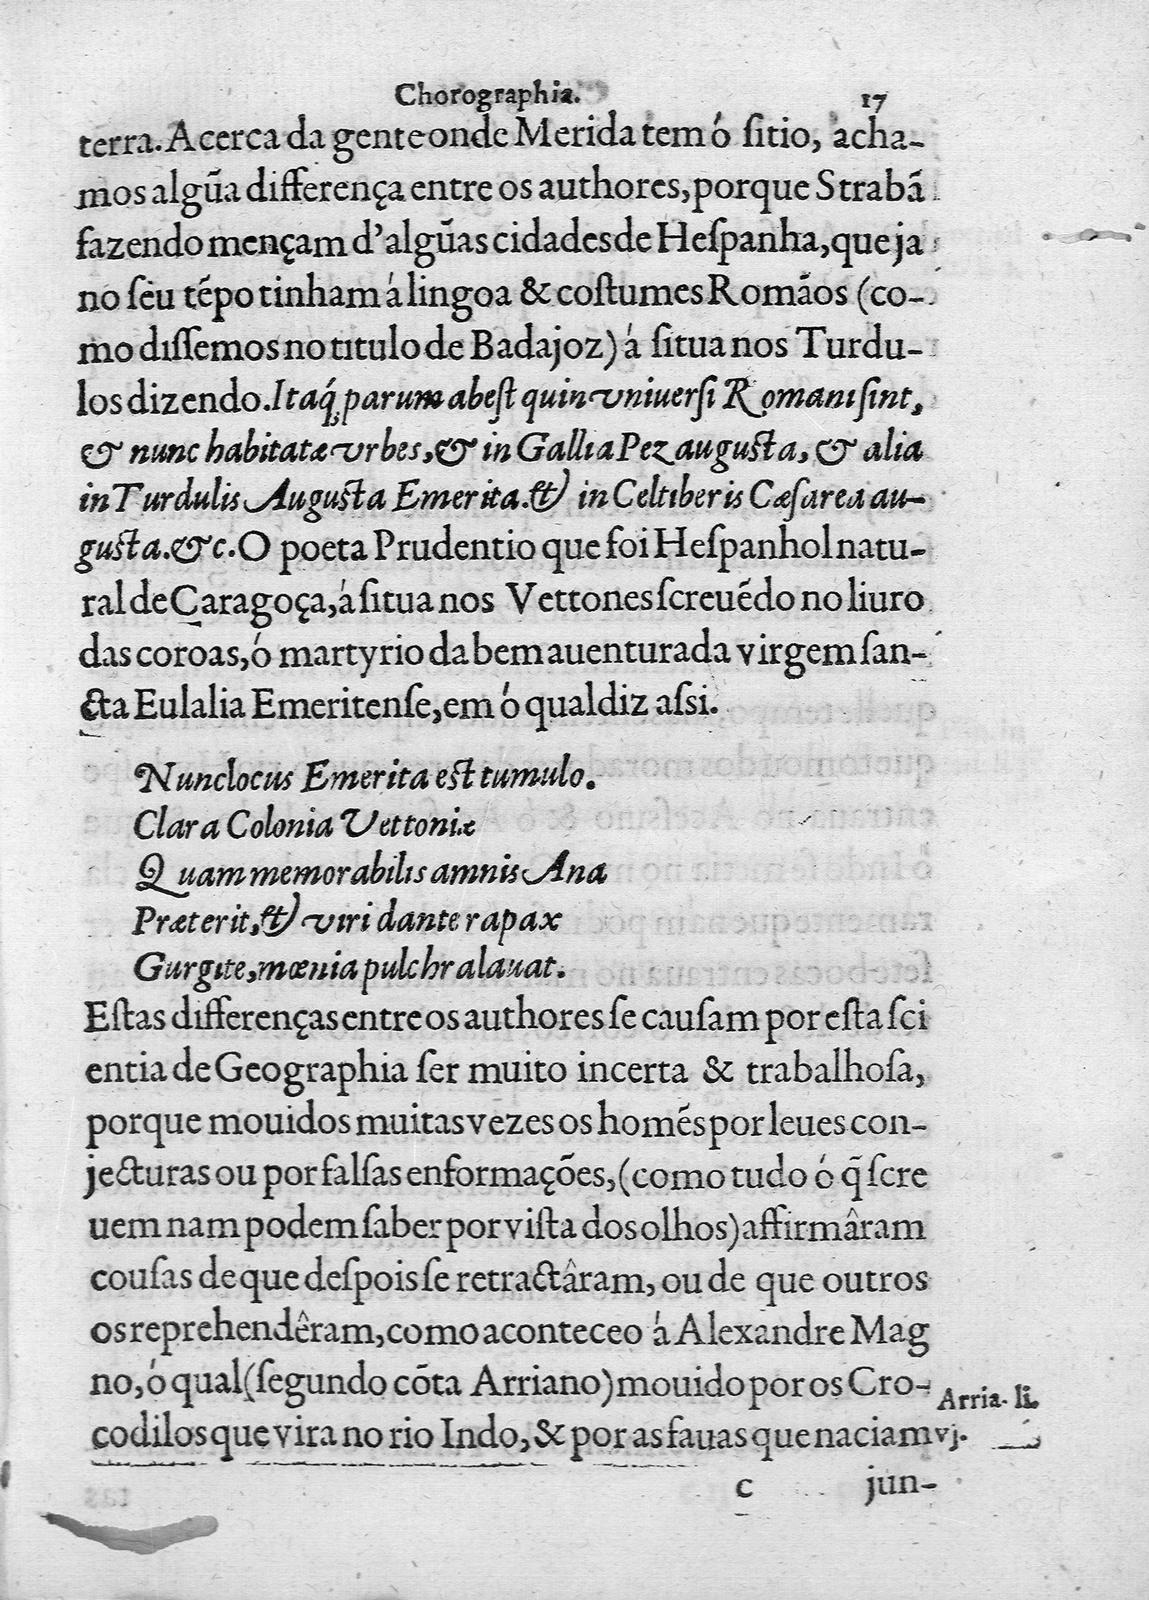 Chorographia. 17
terra. Acerca da gente onde Merida tem ó ſitio, acha-
mos algũa differença entre os authores, porque Strabã
fazendo mençam d'algũas cidades de Heſpanha, que ja
no ſeu tẽpo tinham á lingoa & coſtumes Romãos (co-
mo diſſemos no titulo de Badajoz) á ſitua nos Turdu-
los dizendo. Itaq́; parum abeſt quin vniuerſi Romani ſint,
& nunc habitatæ vrbes, & in Gallia Pez auguſta, & alia
in Turdulis Auguſta Emerita. & in Celtiberis Cæſarea au-
guſta. &c. O poeta Prudentio que foi Heſpanhol natu-
ral de Çaragoça, á ſitua nos Vettones ſcreuẽdo no liuro
das coroas, ó martyrio da bemauenturada virgem ſan-
cta Eulalia Emeritenſe, em ó qual diz aſsi.
Nunc locus Emerita eſt tumulo.
Clara Colonia Vettoniæ
Quam memorabilis amnis Ana
Præterit, & viridante rapax
Gurgite, mœnia pulchra lauat.
Eſtas differenças entre os authores ſe cauſam por eſta ſci
entia de Geographia ſer muito incerta & trabalhoſa,
porque mouidos muitas vezes os homẽs por leues con-
jecturas ou por falſas enformações, (como tudo ó q̃ ſcre
uem nam podem ſaber por viſta dos olhos) affirmâram
couſas de que deſpois ſe retractâram, ou de que outros
os reprehendêram, como aconteceo á Alexandre Mag
no, ó qual (ſegundo cõta Arriano) mouido por os Cro-
Arria. li.
codilos que vira no rio Indo, & por as fauas que naciam
vj.
c jun-